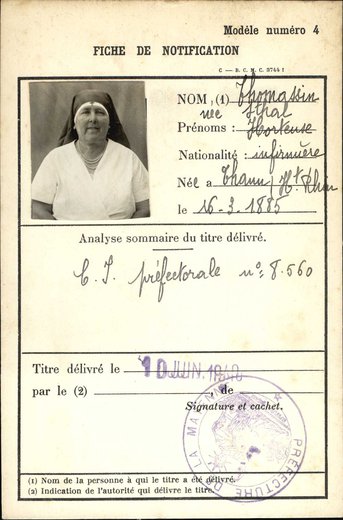 Modèle numéro 4
FICHE DE NOTIFICATION
C — B. C. M. C. 9744 I
NOM, (1) Thomassin
née Sthal
Prénoms : Hortense
Nationalité : infirmière
Née a Thann / Ht Rhin
le 16-3-1885
Analyse sommaire du titre délivré.
C. I. préfectorale n°: 8.560
Titre délivré le 10 JUIN. 1940
par le (2) , de
Signature et cachet.
PRÉFECTURE DE LA MARNE
(1) Nom de la personne à qui le titre a été délivré.
(2) Indication de l'autorité qui délivre le titre.